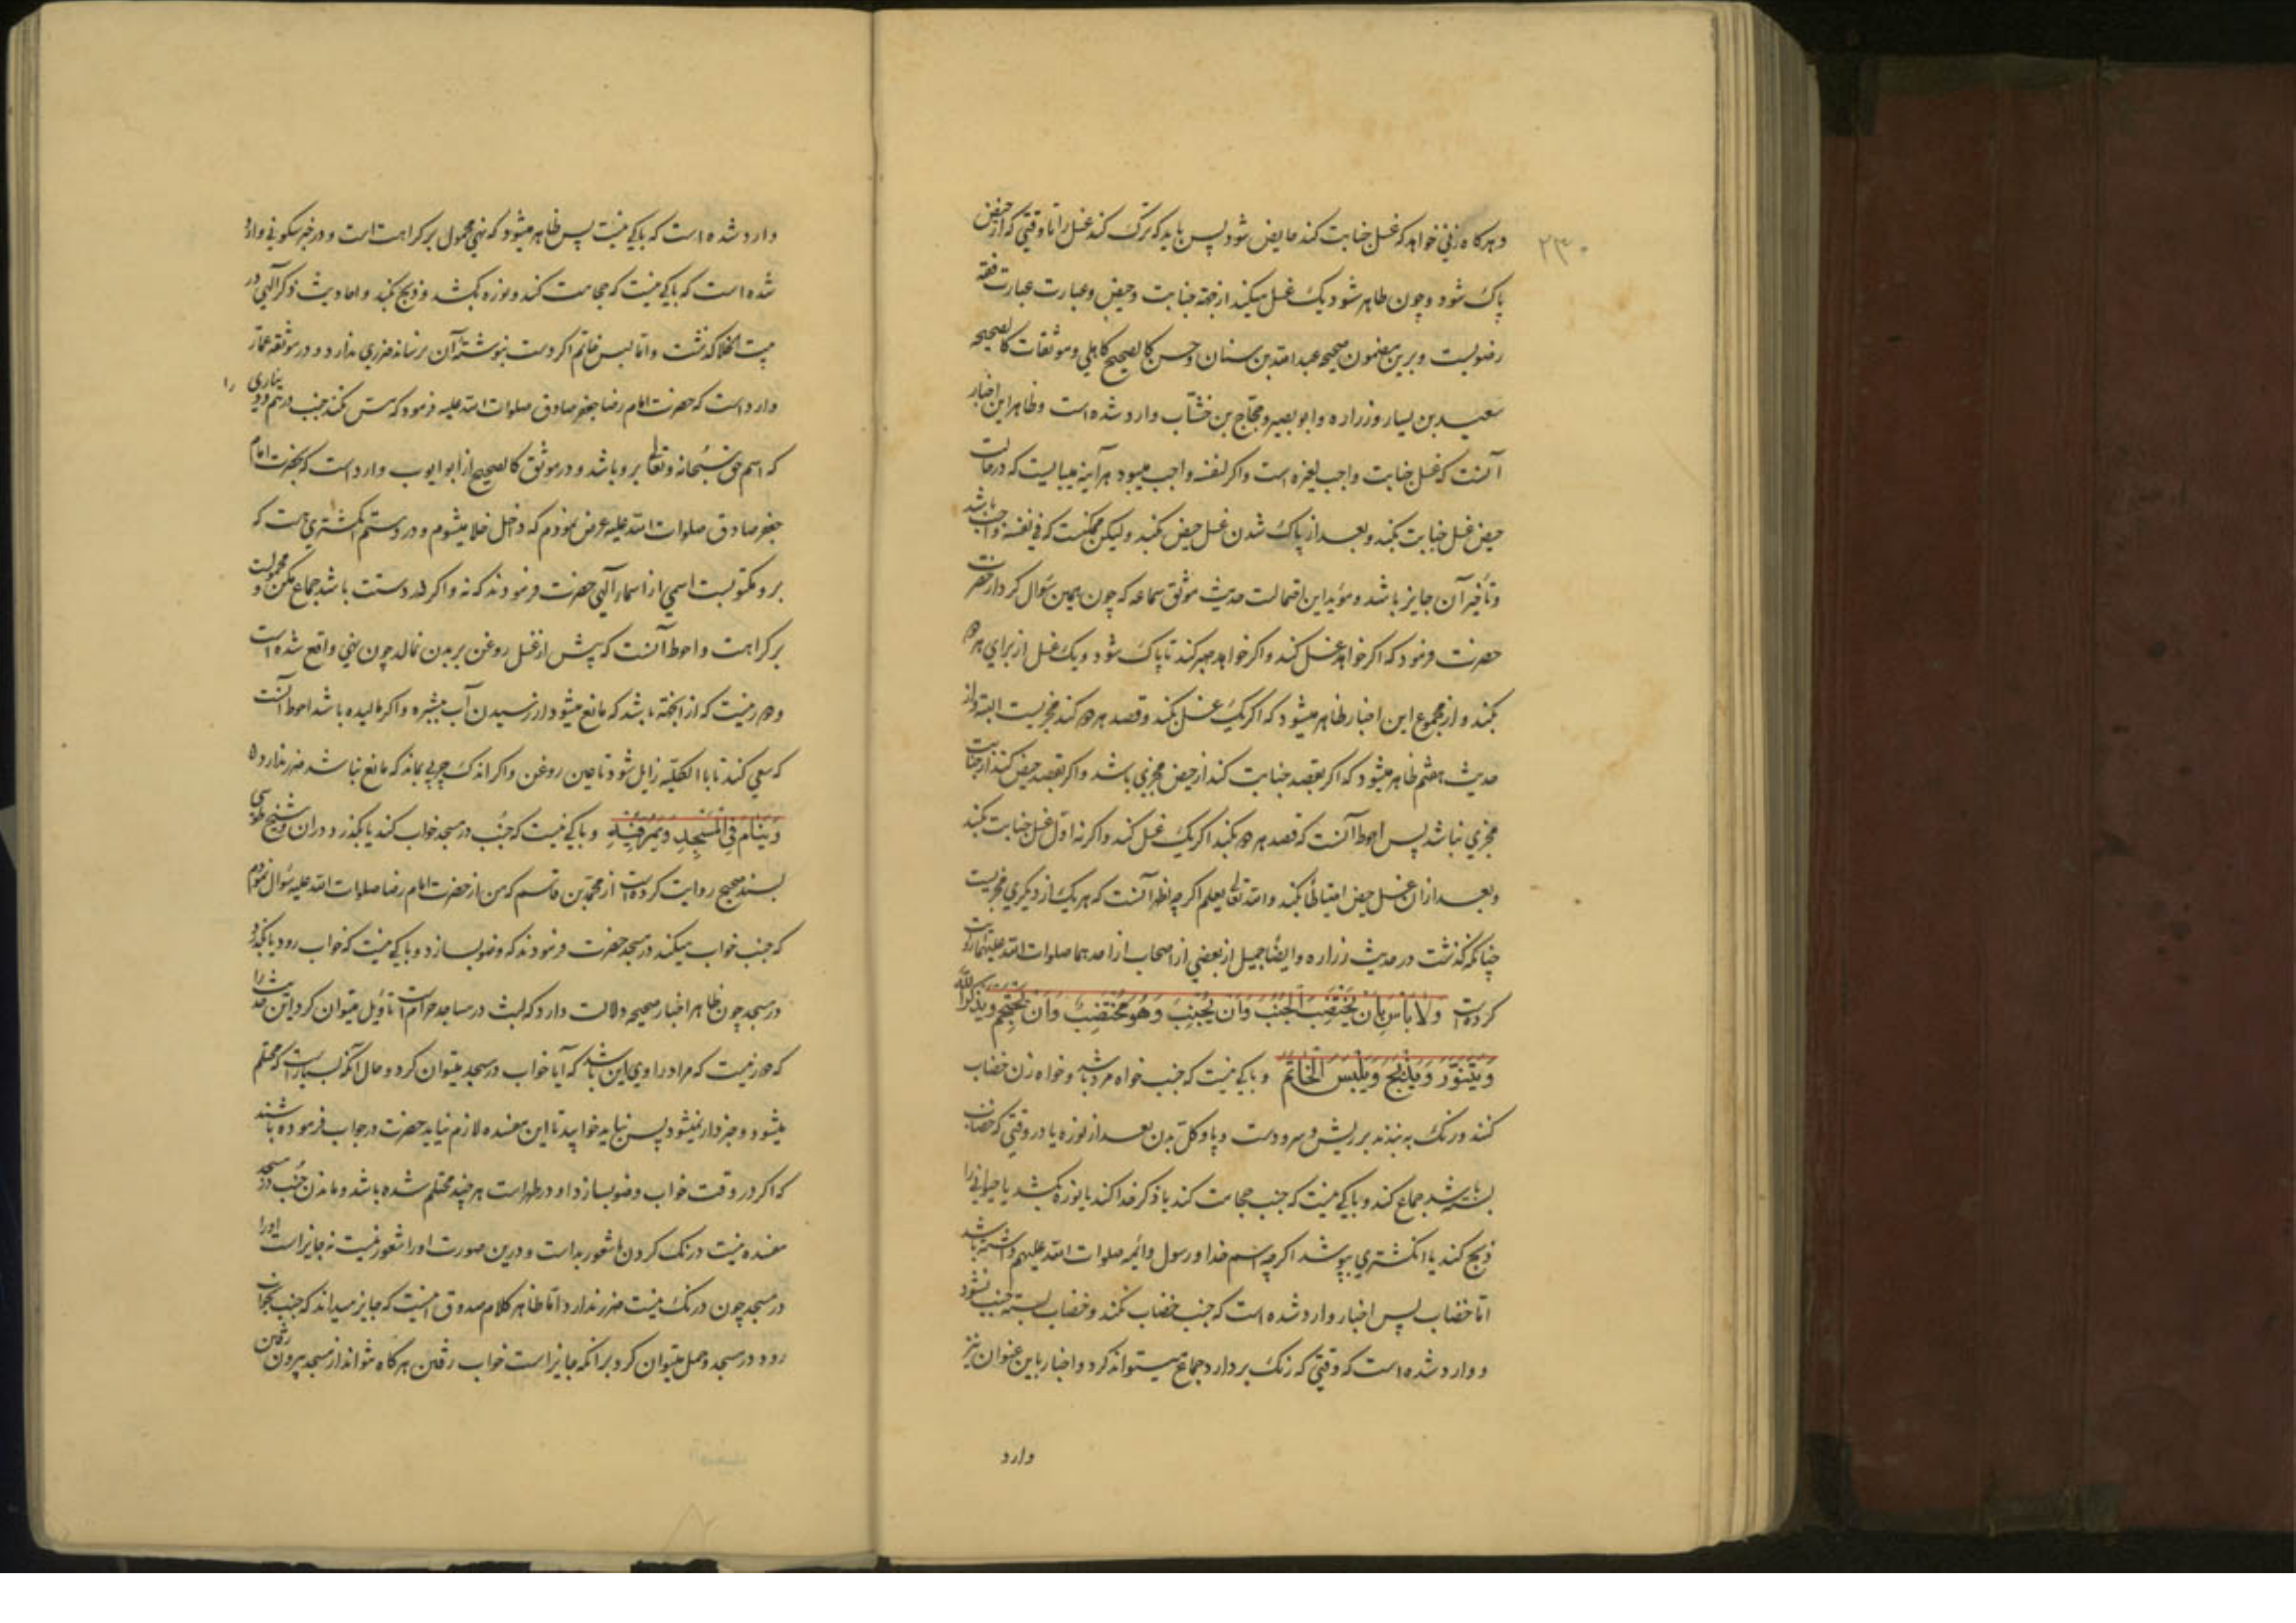 ۲۳۰
و هرگاه زنی خواهد که غسل جنابت کند حایض شود پس باید که ترک کند غسل را تا وقتی که از حیض
پاک شود و چون طاهر شود یک غسل میکند از جهة جنابت و حیض و عبارت عبارت فقه
رضویست و برین مضمون صحیحه عبد الله بن سنان و حسن کالصحیح کاهلی و موثقات کالصحیحه
سعید بن یسار و زراره و ابو بصیر و حجاج بن خشاب وارد شده است و ظاهر این اخبار
آنست که غسل جنابت واجب لغیره است و اگر لنفسه واجب میبود هرآینه میبایست که در حالت
حیض غسل جنابت بکند و بعد از پاک شدن غسل حیض بکند ولیکن ممکنست که فی نفسه واجب باشد
و تأخیر آن جایز باشد و مؤید این احتمالست حدیث موثق سماعه که چون همین سؤال کرد از حضرت
حضرت فرمود که اگر خواهد غسل کند و اگر خواهد صبر کند تا پاک شود و یک غسل از برای هر دو
بکند و از مجموع این اخبار ظاهر میشود که اگر یک غسل بکند و قصد هر دو کند مجزیست البته و از
حدیث هشتم ظاهر میشود که اگر بقصد جنابت کند از حیض مجزی باشد و اگر بقصد حیض کند از جنابت
مجزی نباشد پس احوط آنست که قصد هر دو بکند اگر یک غسل کند و اگر نه اول غسل جنابت بکند
و بعد از ان غسل حیض احتیاطا بکند و الله تعالی یعلم اگرچه اظهر آنست که هر یک از دیگری مجزیست
چنانکه گذشت در حدیث زراره و ایضا جمیل از بعضی از اصحاب از احدهما صلوات الله علیهما روایت
کرده است وَلَا بَأْسَ بِأَنْ يَخْتَضِبَ الْجُنُبُ وَأَنْ يُجْنِبَ وَهُوَ مُخْتَضِبٌ وَأَنْ يَحْتَجِمَ وَيَذْكُرَ اللَّهَ
وَيَتَنَوَّرَ وَيَذْبَحَ وَيَلْبَسَ الْخَاتَمَ و باکی نیست که جنب خواه مرد باشد و خواه زن خضاب
کنند و رنگ به بندند بر ریش و سر و دست و پا و کل بدن بعد از نوره یا در وقتی که خضاب
بسته باشد جماع کند و باکی نیست که جنب حجامت کند یا ذکر خدا کند یا نوره بکشد یا حیوانی را
ذبح کند یا انگشتری بپوشد اگرچه اسم خدا و رسول و ائمه صلوات الله علیهم داشته باشد
اما خضاب پس اخبار وارد شده است که جنب خضاب نکند و خضاب بسته جنب نشود
و وارد شده است که وقتی که رنگ بردارد جماع میتواند کرد و اخبار باین عنوان نیز
وارد
وارد شده است که باکی نیست پس ظاهر میشود که نهی محمول بر کراهت است و در خبر سکونی وارد
شده است که باکی نیست که حجامت کند و نوره بکشد و ذبح بکند و احادیث ذکر الهی در
بیت الخلا گذشت و اما لبس خاتم اگر دست بنوشته آن نرساند ضرری ندارد و در موثقه عمار
وارد است که حضرت امام رضا جعفر صادق صلوات الله علیه فرمود که مس نکند جنب درهم و دیناری را
که اسم حق سبحانه و تعالی برو باشد و در موثق کالصحیح از ابو ایوب وارد است که بحضرت امام
جعفر صادق صلوات الله علیه عرض نمودم که داخل خلا میشوم و در دستم انگشتری هست که
برو مکتوبست اسمی از اسمآء الهی حضرت فرمودند که نه و اگر در دستت باشد جماع مکن و محمولست
بر کراهت و احوط آنست که پیش از غسل روغن بر بدن نمالد چون نهی واقع شده است
و دور نیست که از انجهة باشد که مانع میشود از رسیدن آب ببشره و اگر مالیده باشد احوط آنست
که سعی کند تا بالکلیه زایل شود تا حین روغن و اگر اندک چربی بماند که مانع نباشد ضرر ندارد
وَيَنَامَ فِي الْمَسْجِدِ وَيَمُرَّ فِيهِ و باکی نیست که جنب در مسجد خواب کند یا بگذرد دران و شیخ طوسی
بسند صحیح روایت کرده است از محمد بن قاسم که من از حضرت امام رضا صلوات الله علیه سؤال نمودم
که جنب خواب میکند در مسجد حضرت فرمودند که وضو بسازد و باکی نیست که خواب رود یا بگذرد
در مسجد چون ظاهر اخبار صحیحه دلالت دارد که لبث در مساجد حرام است تأویل میتوان کرد این حدیث را
که دور نیست که مراد راوی این باشد که آیا خواب در مسجد میتوان کرد و حال آنکه بسیار است که محتلم
میشود و خبردار نمیشود پس نباید خوابید تا این مفسده لازم نیاید حضرت در جواب فرموده باشند
که اگر در وقت خواب وضو بسازد او در طهر است هر چند محتلم شده باشد و ماندن جنب در مسجد
مفسده نیست درنگ کردن با شعور بد است و درین صورت او را شعور نیست نه جایز است او را
در مسجد چون درنگ نیست ضرر ندارد اما ظاهر کلام صدوق اینست که جایز میداند که جنب بخواب
رود در مسجد و حمل میتوان کرد برانکه جایز است خواب رفتن هرگاه نتواند از مسجد بیرون رفتن